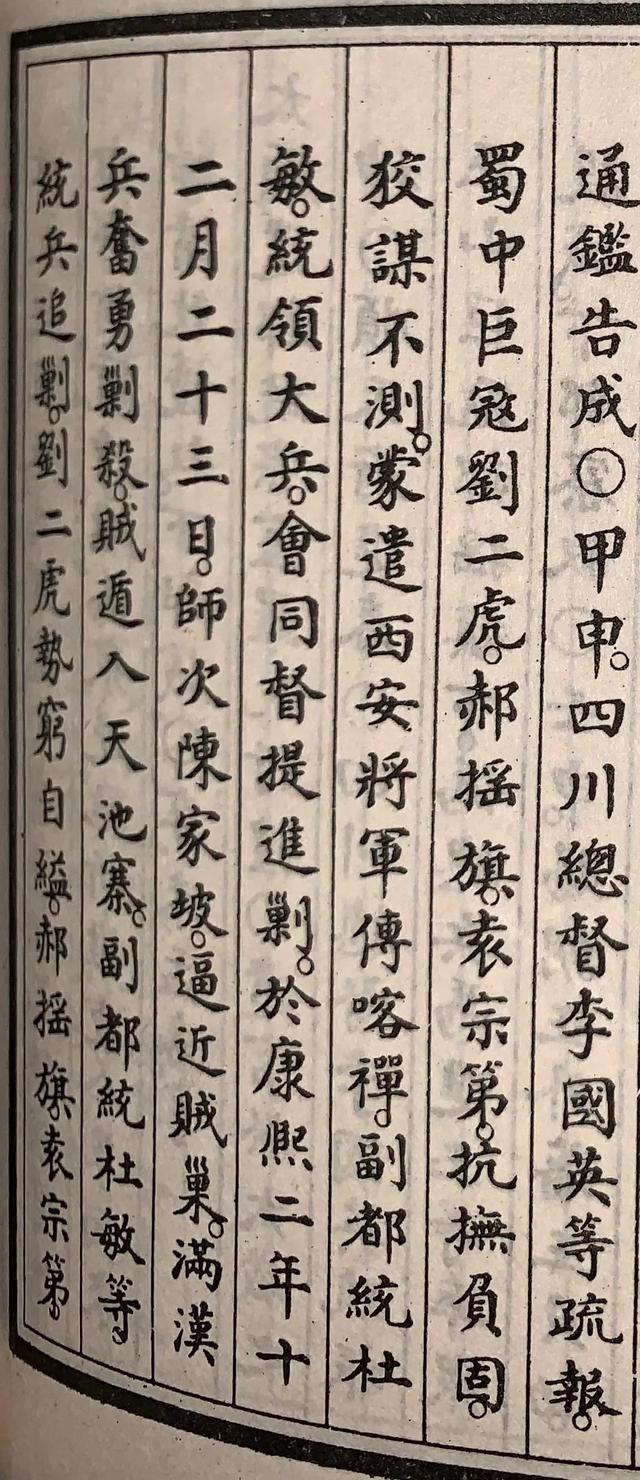 通鑑告成○甲申。四川總督李國英等疏報。
蜀中巨寇劉二虎。郝搖旗。袁宗第。抗撫負固。
狡謀不測。蒙遣西安將軍傅喀禪。副都統杜
敏。統領大兵。會同督提進剿。於康熙二年十
二月二十三日。師次陳家坡。逼近賊巢。滿漢
兵奮勇剿殺。賊遁入天池寨。副都統杜敏等。
統兵追剿。劉二虎勢窮自縊。郝搖旗。袁宗第。